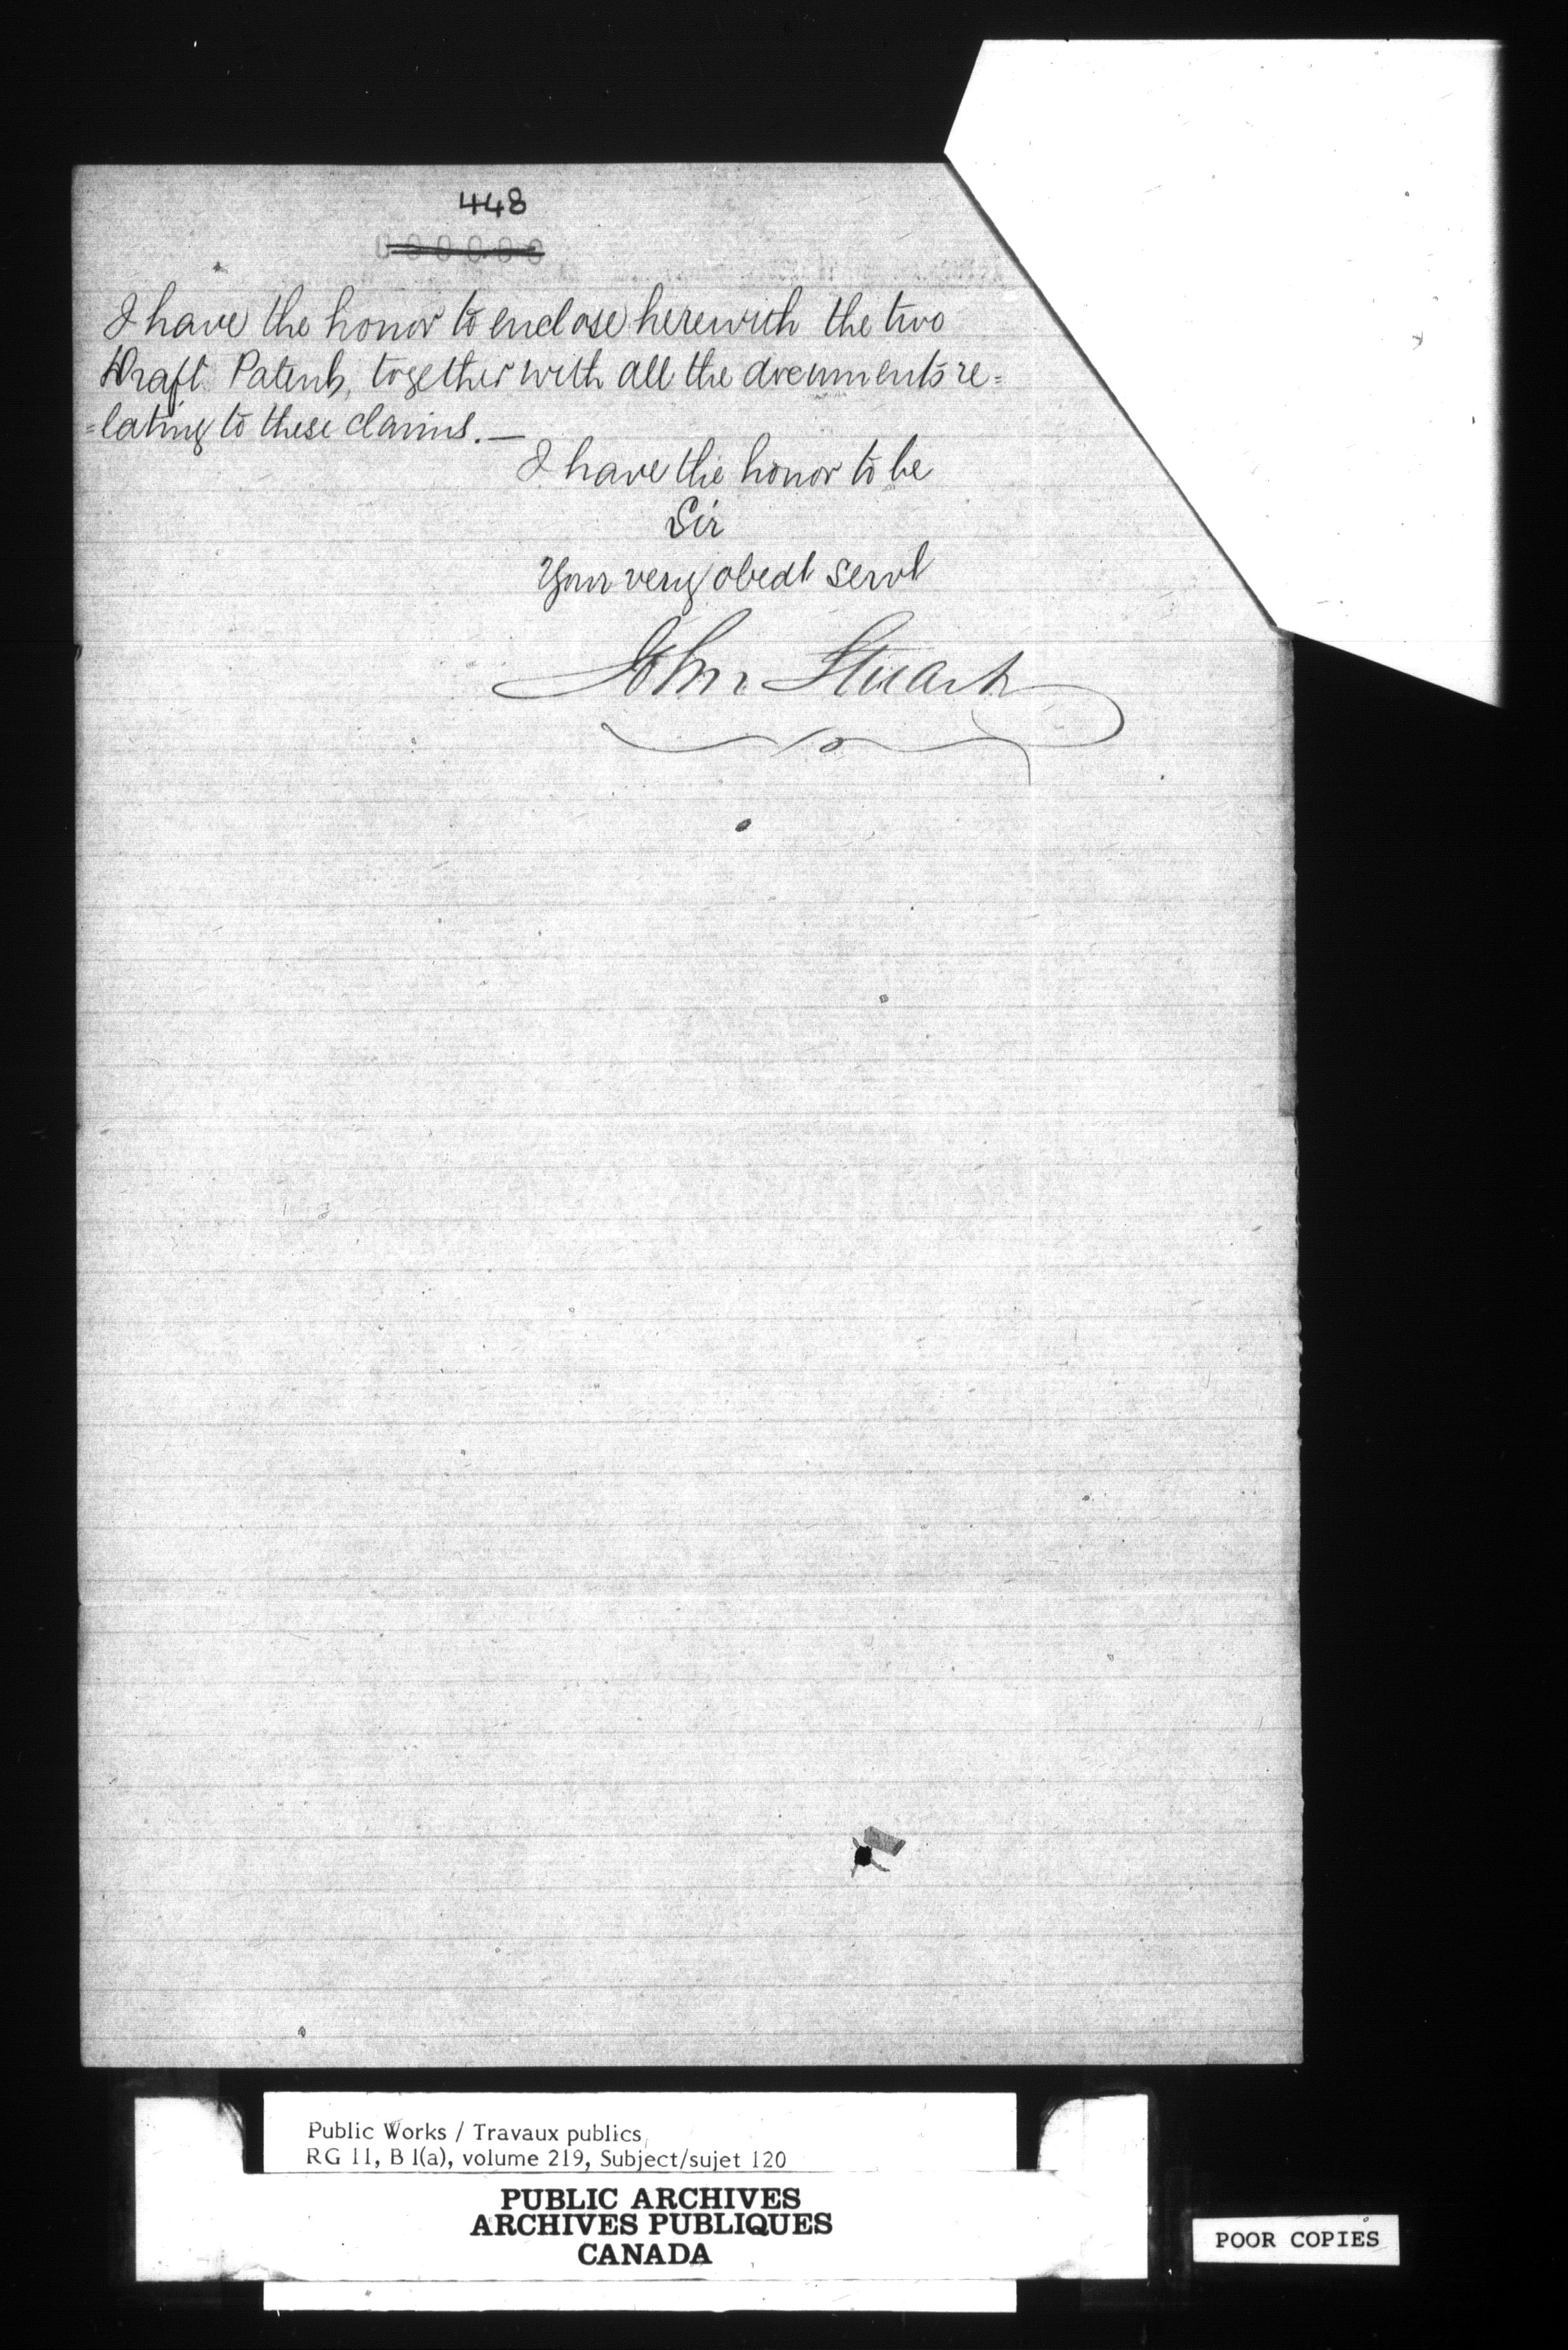 448
I have the honor to enclose herewith the two
Draft Patents, together with all the documents re=
=lating to these claims.—
I have the honor to be
Sir
Your very obedt servt
John Stuart
Public Works / Travaux publics
RG 11, B 1(a), volume 219, Subject/sujet 120
PUBLIC ARCHIVES
ARCHIVES PUBLIQUES
CANADA
POOR COPIES